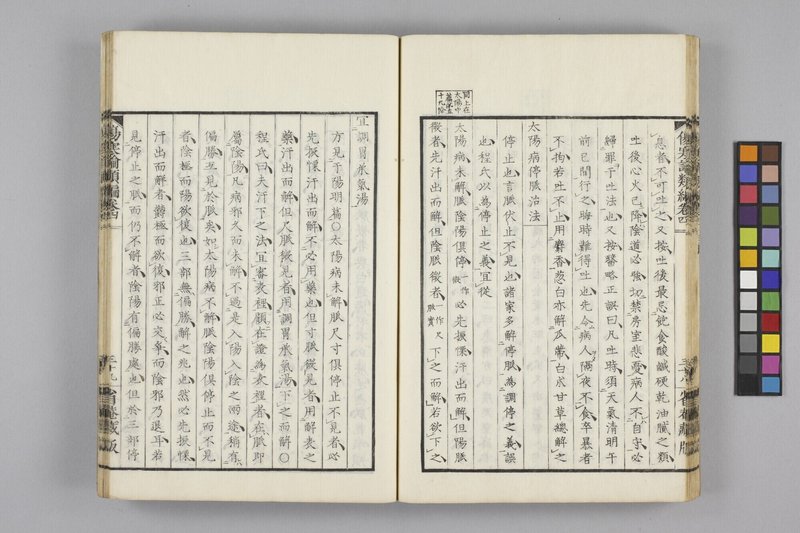 患者不可吐之又按吐後最忌飽食酸鹹硬乾油膩之類
吐後心火已降陰道必強切禁房室悲憂病人不自守必
歸罪于吐法也又按綮略正誤曰凡吐時須天氣清明午
前已間行之晦時難得吐也先令病人隔夜不食卒暴者
不拘若吐不止用麝香葱白亦解瓜蔕白朮甘草總解之
太陽病停脈治法
停止也言脈伏止不見也諸家多解停脈為調停之義誤
也程氏以為停止之義宜從
太陽病未解脈陰陽俱停一作微必先振慄汗出而解但陽脈
微者先汗出而解但陰脈微者一作尺脈實下之而解若欲下之
宜調胃承氣湯
方見于陽明篇○太陽病未解脈尺寸俱停止不見者必
先振慄汗出而解不必用藥也但寸脈微見者用解表之
藥汗出而解但尺脈微見者用調胃承氣湯下之而解○
程氏曰夫汗下之法宜審表裡顧在證為表裡者在脈即
屬陰陽凡病邪久而未解不過是入陽入陰之兩途稍有
偏勝互見於脈矣如太陽病不解脈陰陽俱停止而不見
者陰極而陽欲復也三部無偏勝解之兆也然必先振慄
汗出而解者鬱極而欲復邪正必交爭而陰邪乃退耳若
見停止之脈而仍不解者陰陽有偏勝處也但於三部停
傷寒論類編卷四